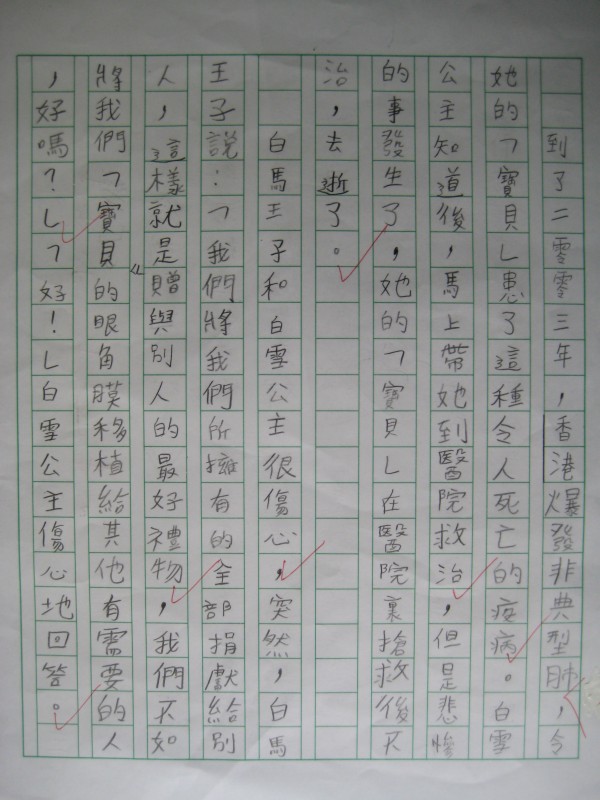 到了二零零三年，香港爆發非典型肺，令
她的「寶貝」患了這種令人死亡的疫病。白雪
公主知道後，馬上帶她到醫院救治，但是悲慘
的事發生了，她的「寶貝」在醫院裏搶救後不
治，去逝了。
白馬王子和白雪公主很傷心，突然，白馬
王子說：「我們將我們所擁有的全部捐獻給別
人，這樣就是贈與別人的最好禮物，我們不如
將我們「寶貝」的眼角膜移植給其他有需要的人
，好嗎？」「好！」白雪公主傷心地回答。